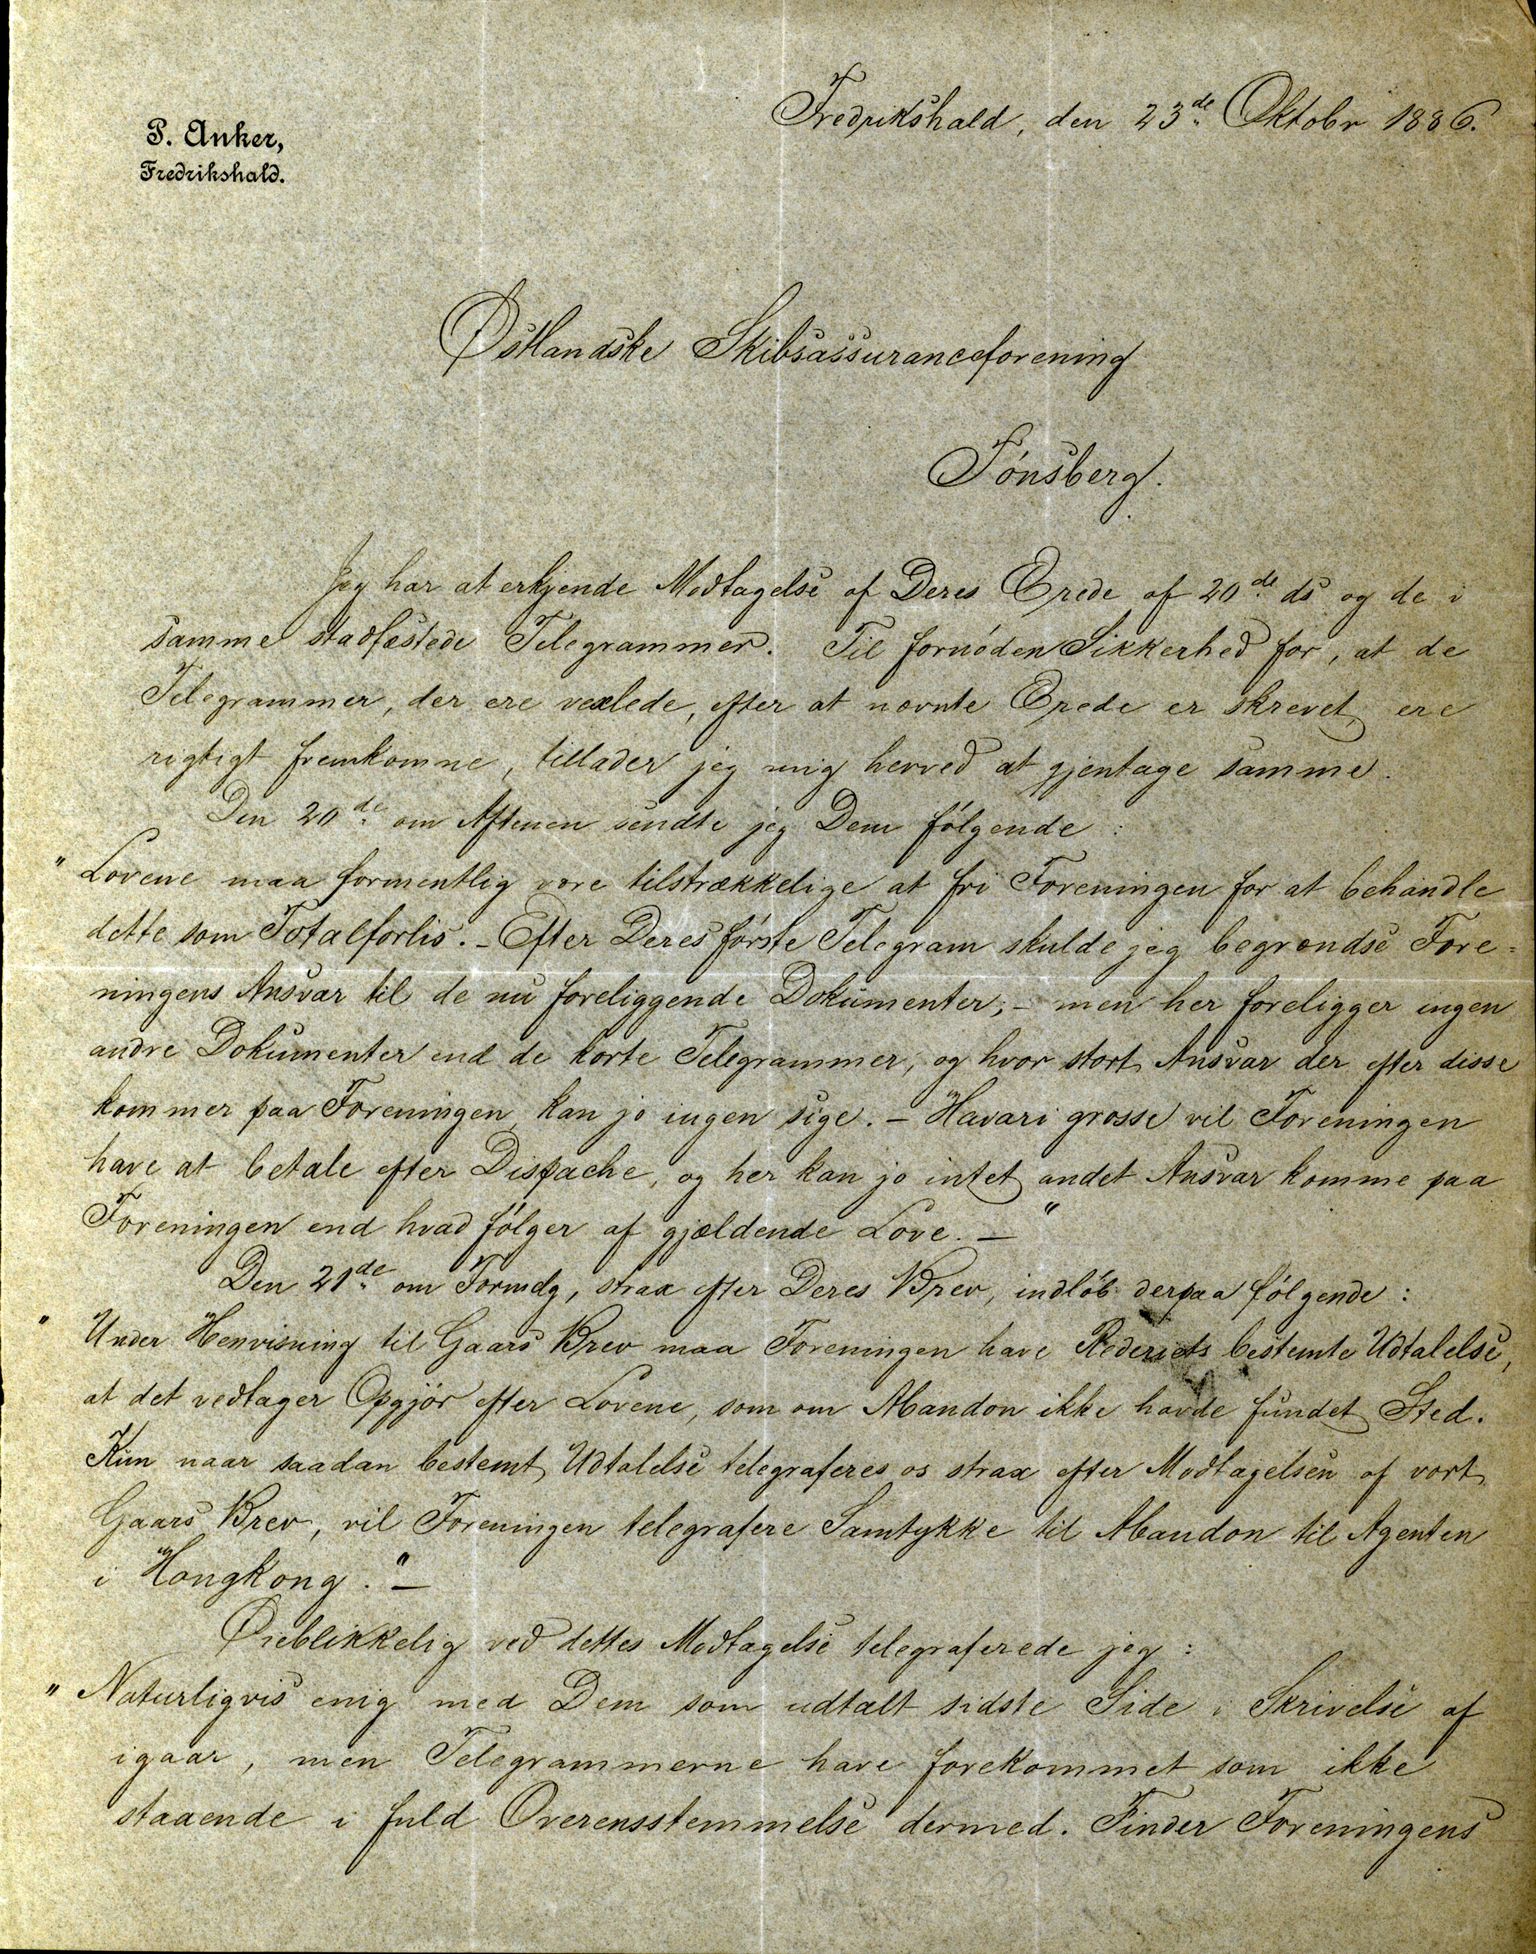 P. Anker,
Fredrikshald.
Fredrikshald, den 23de Oktobr 1886.
Østlandske Skibsassuranceforening
Tónsberg.
Jeg har at erkjende Modtagelse af Deres Ærede af 20de ds og de i
samme stadfæstede Telegrammer. Til fornóden Sikkerhed for, at de
Telegrammer, der ere vexlede, efter at nævnte Ærede er skrevet, ere
rigtigt fremkomne, tillader jeg mig herved at gjentage samme.
Den 20de om Aftenen sendte jeg Dem fólgende:
"Lovene maa formentlig være tilstrækkelige at fri Foreningen for at behandle
dette som Totalforlis. - Efter Deres fórste Telegram skulde jeg begrændse Fore=
ningens Ansvar til de nu foreliggende Dokumenter, - men her foreligger ingen
andre Dokumenter end de korte Telegrammer, og hvor stort Ansvar der efter disse
kommer paa Foreningen kan jo ingen sige. - Havari grosse vil Foreningen
have at betale efter Dispache, og her kan jo intet andet Ansvar komme paa
Foreningen end hvad fólger af gjældende Love. - "
Den 21de om Formdg, strax efter Deres Brev, indlób derpaa fólgende:
"Under Henvisning til Gaars Brev maa Foreningen have Rederiets bestemte Udtalelse,
at det vedtager Opgjór efter Lovene, som om Abandon ikke havde fundet Sted.
Kun naar saadan bestemt Udtalelse telegraferes os strax efter Modtagelsen af vort
Gaars Brev, vil Foreningen telegrafere Samtykke til Abandon til Agenten
i Hongkong." -
Øieblikkelig ved dettes Modtagelse telegraferede jeg:
"Naturligvis enig med Dem som udtalt sidste Side i Skrivelse af
igaar, men Telegrammerne have forekommet som ikke
staaende i fuld Overensstemmelse dermed. Finder Foreningens